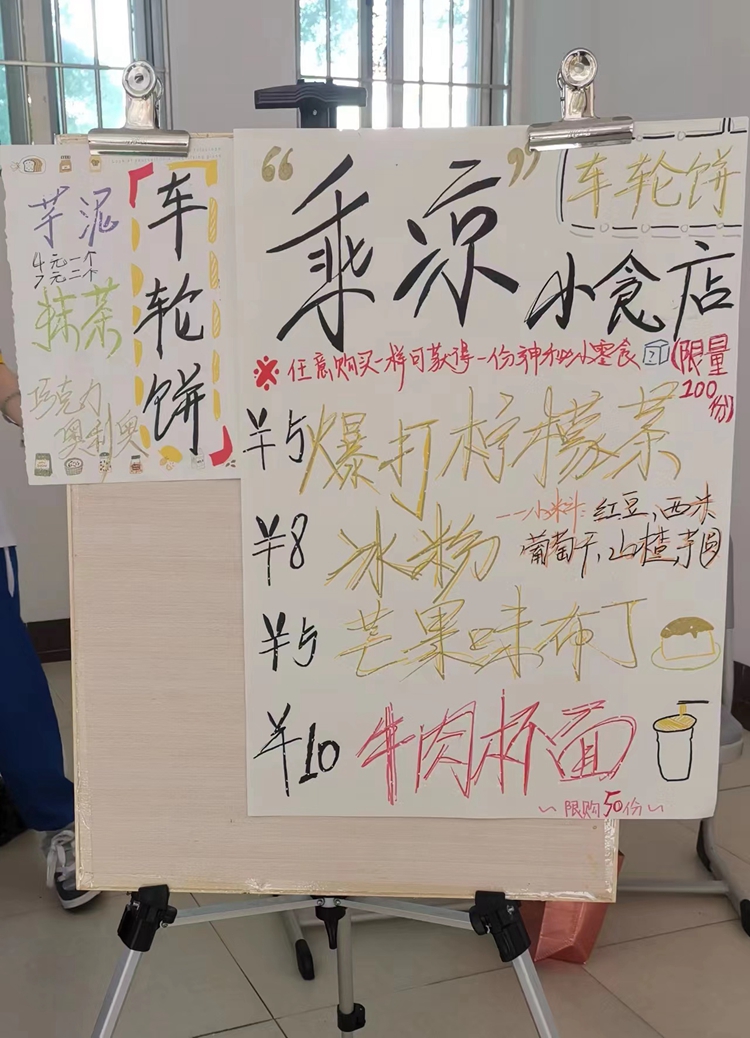 车轮饼
芋泥
4元一个
7元二个
抹茶
巧克力
奥利奥
“乘凉”
小食店
车轮饼
※任意购买一样可获得一份神秘小零食(限量
200份)
¥5 爆打柠檬茶
¥8 冰粉
——小料:红豆、西米
葡萄干、山楂、芋圆
¥5 芒果味布丁
¥10 牛肉杯面
~限购50份~